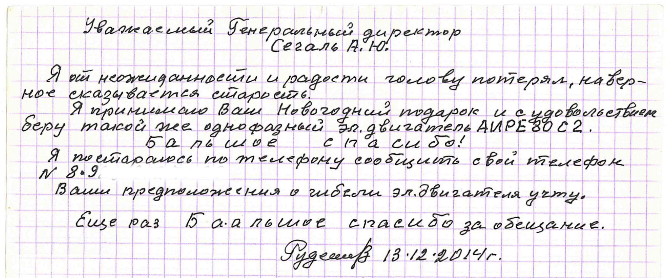 Уважаемый Генеральный директор
Сегаль А.Ю.
Я от неожиданности и радости голову потерял, навер-
ное сказывается старость.
Я принимаю Ваш Новогодний подарок и с удовольствием
беру такой же однофазный эл.двигатель АИРЕ 80 С2.
Бальшое спасибо!
Я постараюсь по телефону сообщить свой телефон
N 8.9
Ваши предположения о гибели эл.двигателя учту.
Еще раз Ба.альшое спасибо за обещание.
13.12.2014г.